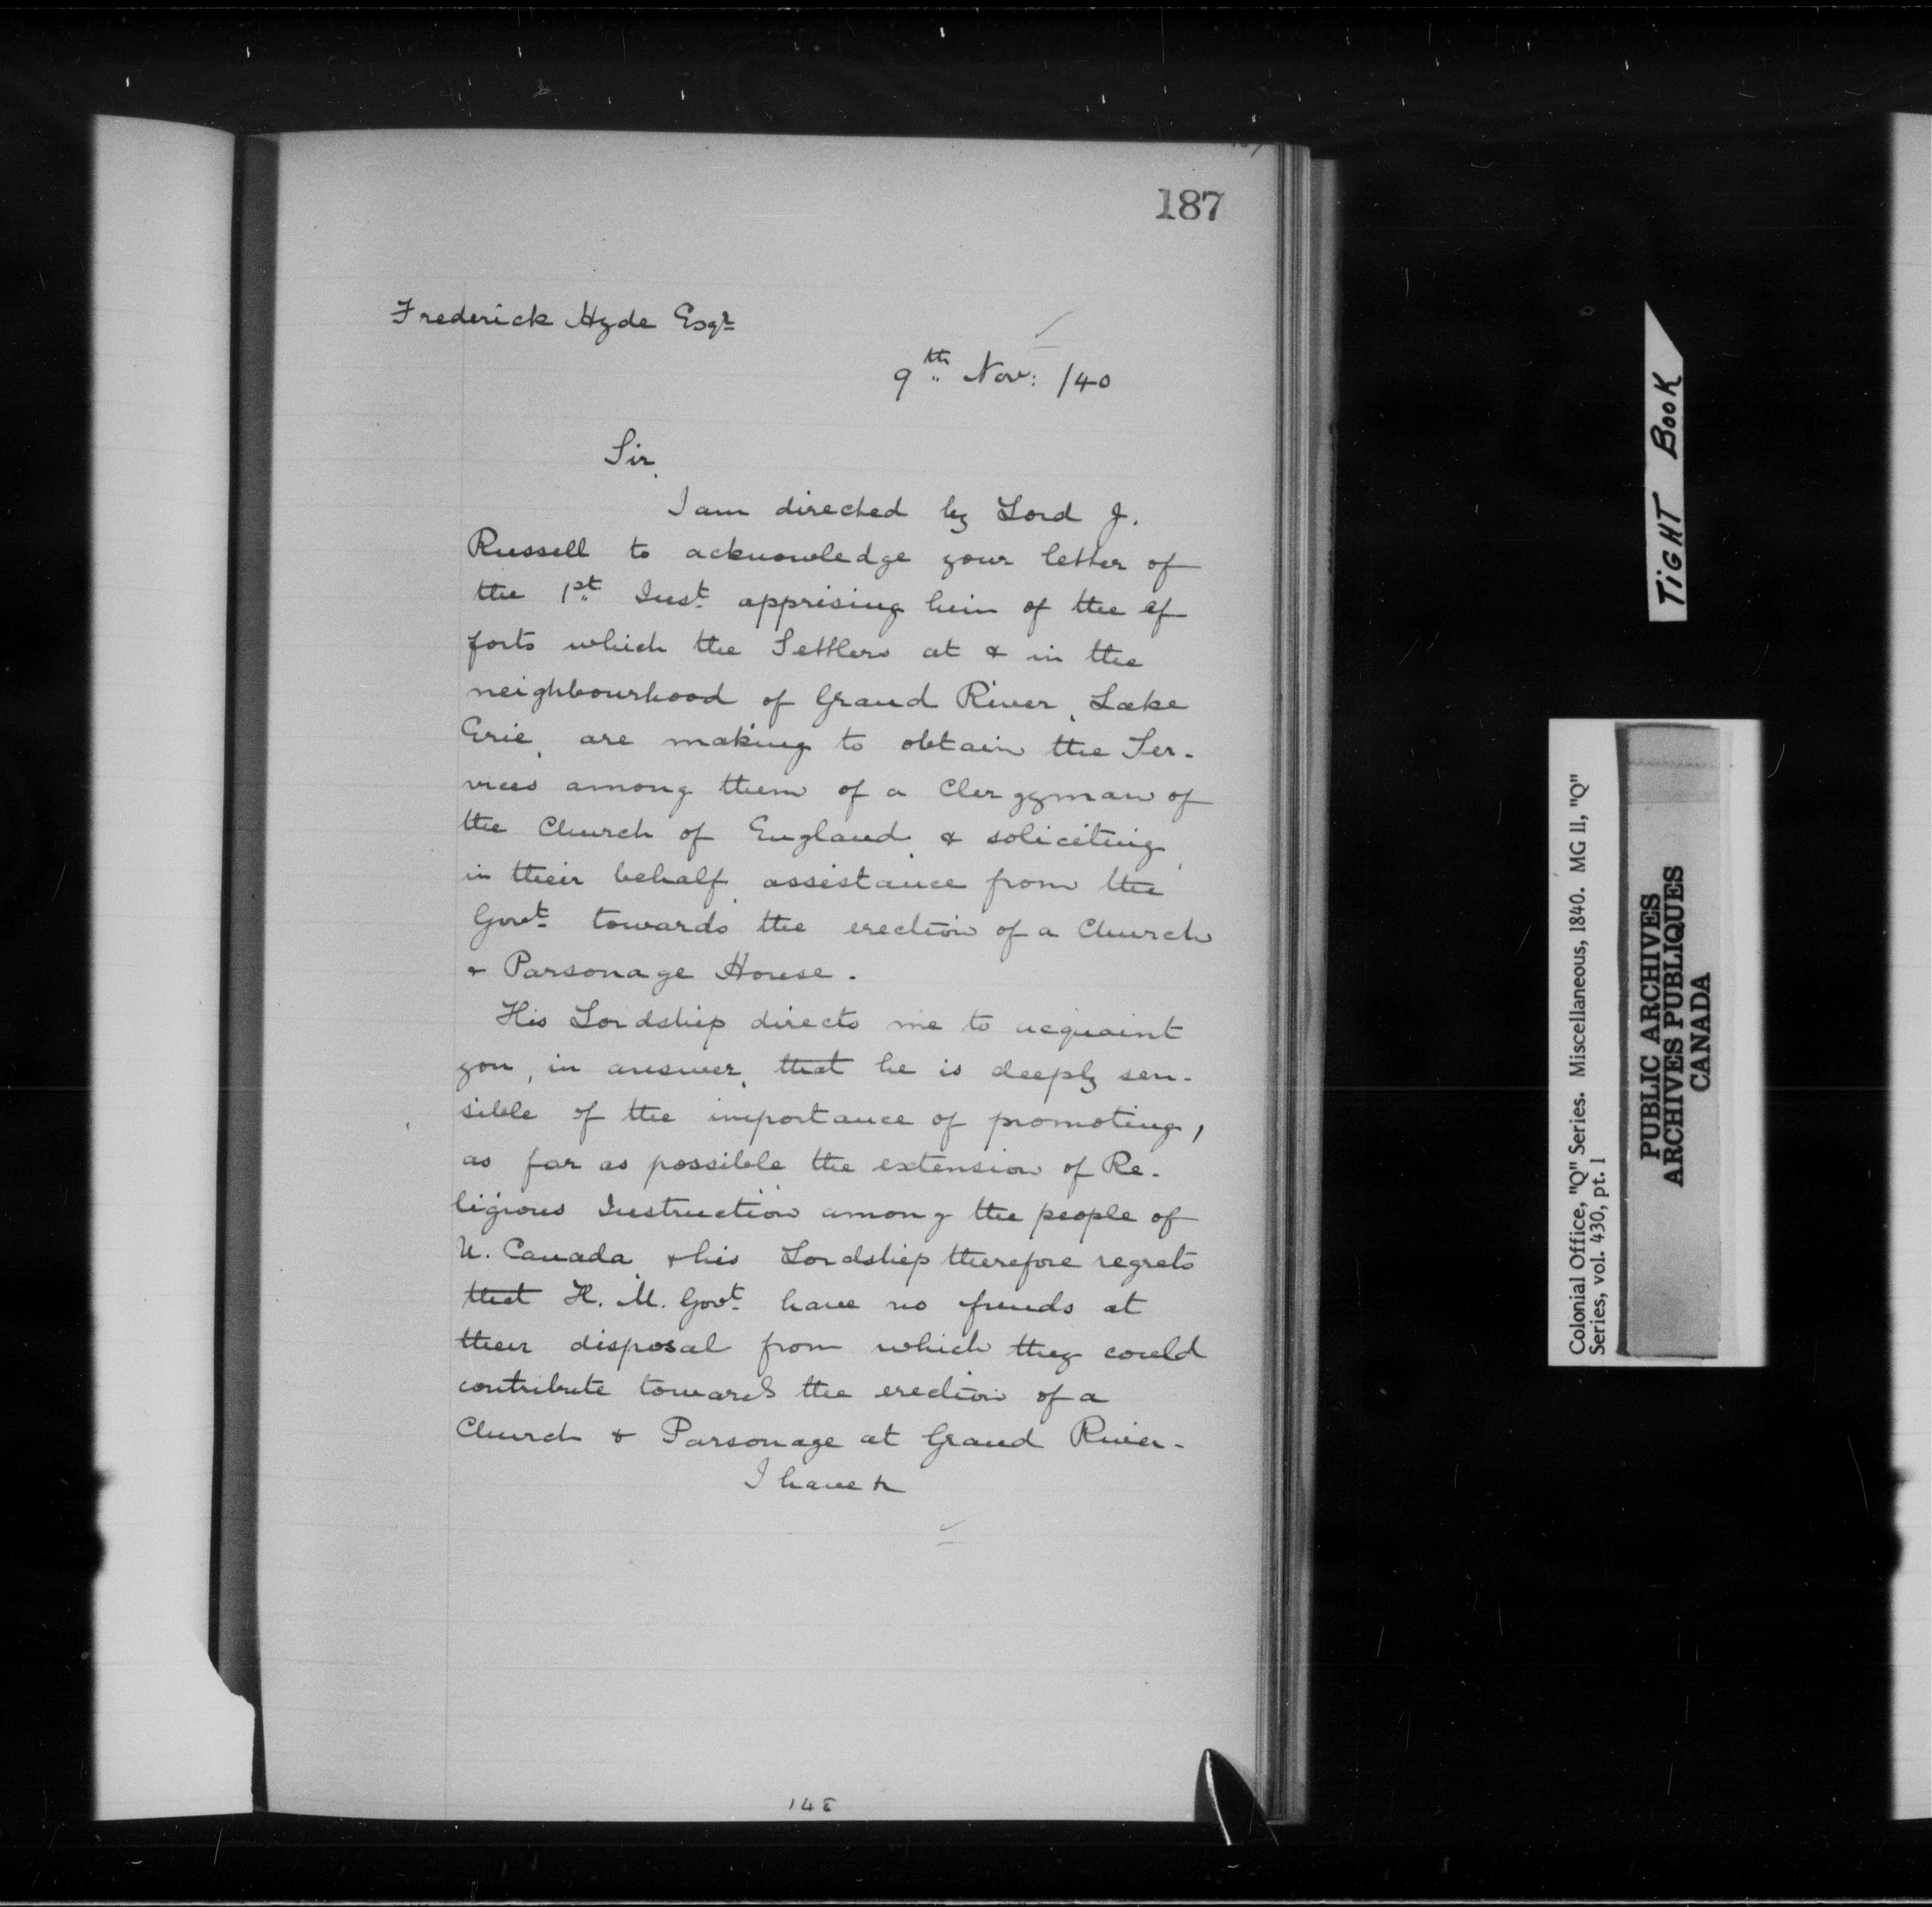 187
Frederick Hyde Esqr
9th Nov: /40
Sir,
I am directed by Lord J.
Russell to acknowledge your letter of
the 1st Inst. apprising him of the ef
forts which the Settlers at & in the
neighbourhood of Grand River, Lake
Erie, are making to obtain the Ser-
vices among them of a Clergyman of
the Church of England, & soliciting,
in their behalf, assistance from the
Govt. towards the erection of a Church
& Parsonage House.
His Lordship directs me to acquaint
you, in answer, that he is deeply sen-
sible of the importance of promoting,
as far as possible, the extension of Re-
ligious Instruction among the people of
U. Canada, & his Lordship therefore regrets
that H. M. Govt. have no funds at
their disposal from which they could
contribute towards the erection of a
Church & Parsonage at Grand River.
I have &
TIGHT BOOK
Colonial Office, "Q" Series. Miscellaneous, 1840. MG 11, "Q"
Series, vol. 430, pt. 1
PUBLIC ARCHIVES
ARCHIVES PUBLIQUES
CANADA